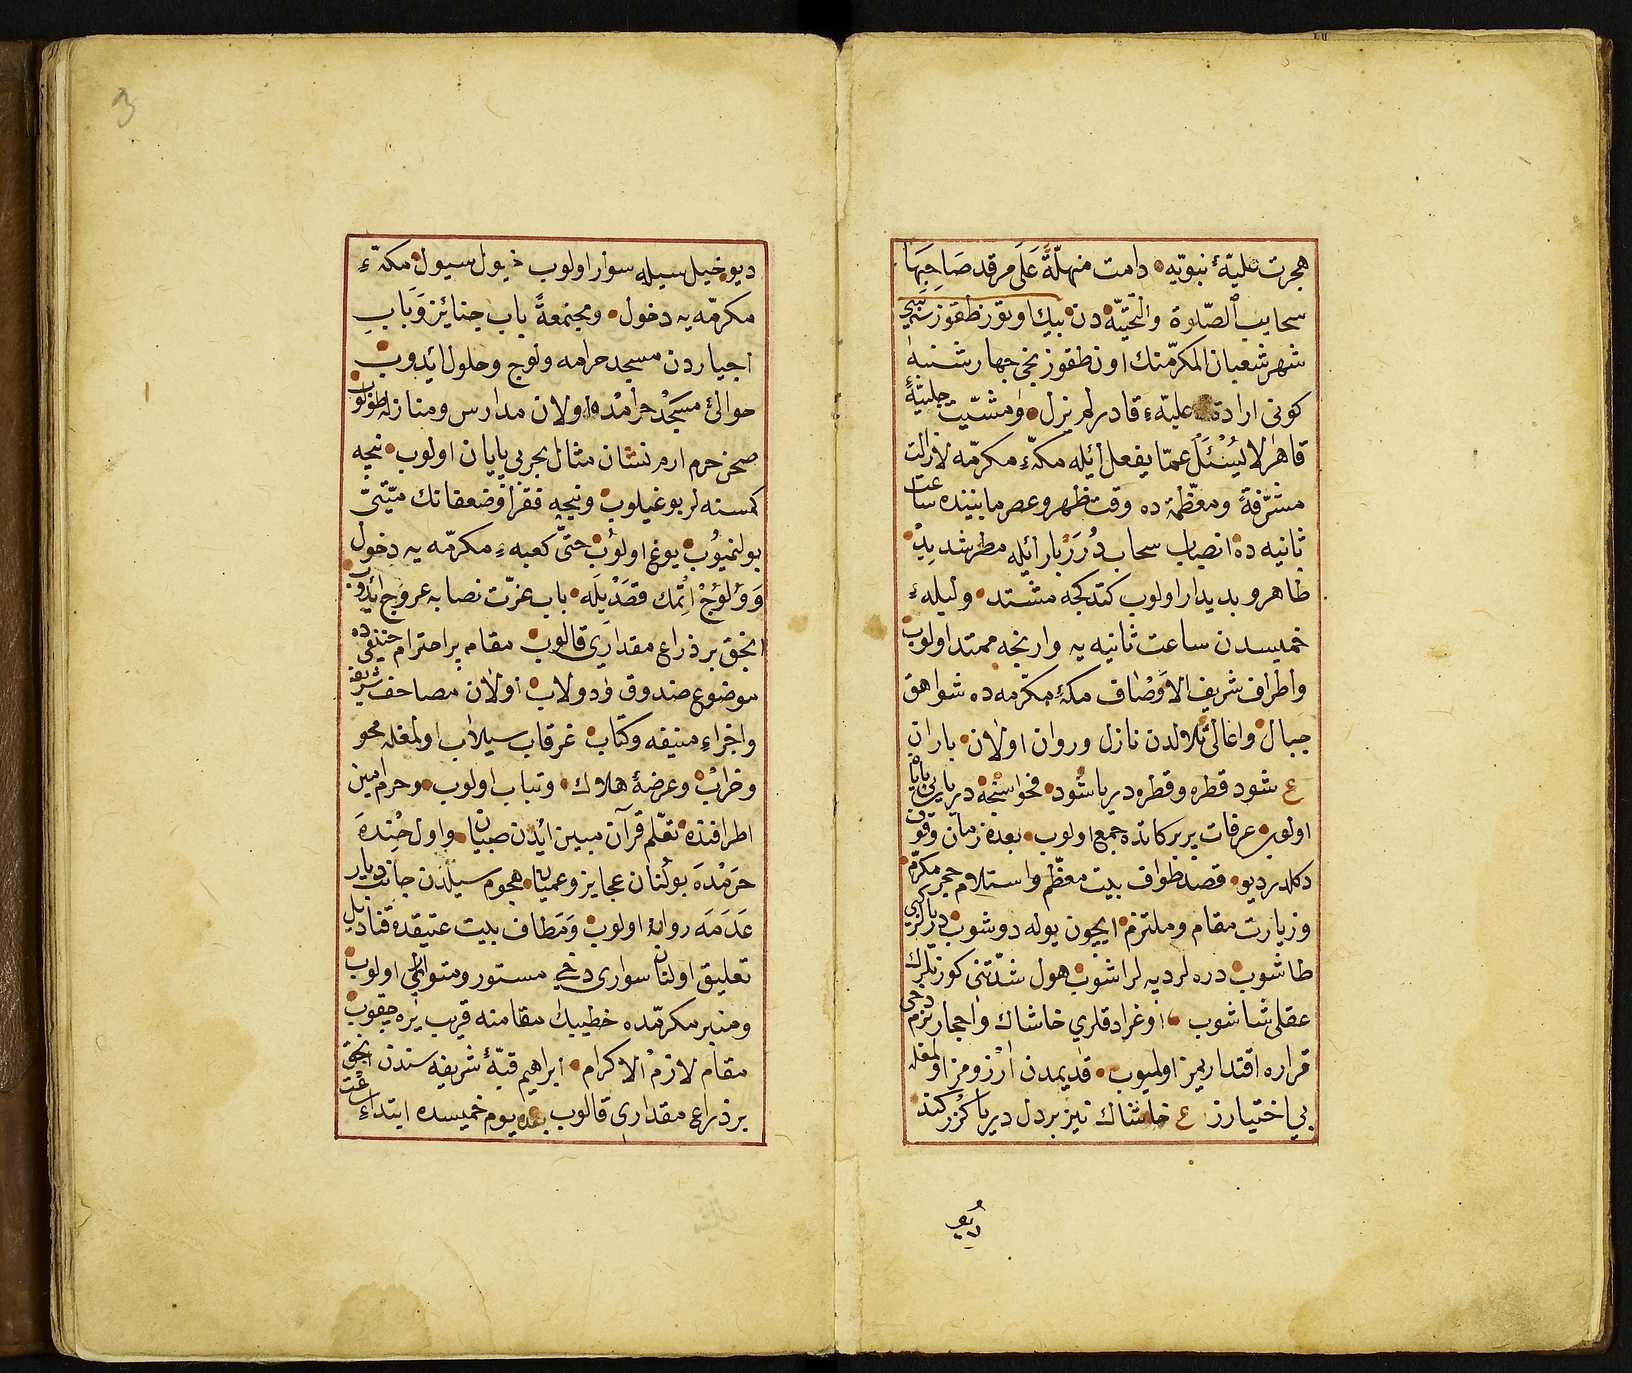 هجرت عليّهٔ نبويّه دامت منهلّةً عَلَى مرقد صَاحِبَهَا
سحايب الصّلوة والتّحيّه دن بيك اوتوز طقوز سنه سى
شهر شعبان المكرّمنك اون طقوزنجى چهار شنبه
كونى ارادهٔ عليّهٔ قادر لم يزل ومشيّت جليّهٔ
قاهر لا يُسْئَلُ عمّا يفعل ايله مكّهٔ مكرّمه لازالت
مشرّفةً ومعظّمة ده وقت ظهر وعصر مابيننده ساعت
ثانيه ده انصباب سحاب دُرَرْبار ايله مطر شديد
ظاهر وبديدار اولوب كتدكجه مشتد وليلهٔ
خميسدن ساعت ثانيه يه وارنجه ممتد اولوب
واطراف شريف الاوصاف مكهٔ مكرّمه ده شواهق
جبال واعالئ تلالدن نازل وروان اولان باران
ع شود قطره وقطره دريا شود فحواسنجه درياى بى پايان
اولوب عرفات بربركاندہ جمع اولوب بعده زمان وقوف
دكلدر ديو قصد طواف بيت معظّم واستلام حجر مكرّم
وزيارت مقام وملتزم ايچون يوله دوشوب
طاشوب دره لرديه لر اشوب هول شدّتنى كورنلرك
عقلى شاشوب اوغرادقلري خاشاك واحجارك دخى
قراره اقتدارلرى اولميوب قديمدن ارزومز اولمغله
بى اختيارز ع خاشاك نيز بر دل دريا كزر كند
ديو
ديو خيل سيله سوار اولوب ذيول سيول مكّهٔ
مكرّمه يه دخول ومجتمعةً باب جنائز وَبَابِ
اجياردن مسجد حرامه ولوج وحلول ايدوب
حوالئ مَسْجِدْ حرامْده اولان مدارس ومنازله طولوب
صحن حرم ارم نشان مثال بحر بى پايان اولوب نيجه
كمسنه لر بوغيلوب ونيجه فقرا وضعفانك ميّتى
بولنميوب يوغ اولوب حتّى كعبهٔ مكرّمه يه دخول
وَوُلوُجْ اِتمك قصديله باب عزّت نصابه عروج ايدوب
انجق بر ذراع مقدارى قالوب مقام پر احترام حنفى ده
موضوع صندوق ودولاب اولان مصاحف شريفه
واجزاء منيفه وكتاب غرقاب سيلاب اولمغله محو
وخراب وعرضهٔ هلاك وتباب اولوب وحرم امين
اطرافنده تعلّم قرآن مبين ايدن صبيان واول حِيْندَه
حرمْدَه بولنان عجايز وعميان هجوم سيلدن جانب ديار
عَدَمَه روانه اولوب وَمَطاف بيت عتيقده قناديل
تعليق اولنان سوارى دخى مستور ومتوارى اولوب
ومنبر مكرّمده خطيبك مقامنه قريب يره چيقوب
مقام لازم الاكرام ابراهيم قبّهٔ شريفه سندن انجق
بر ذراع مقدارى قالوب بعده يوم خميسده ابتداء ساعت
3